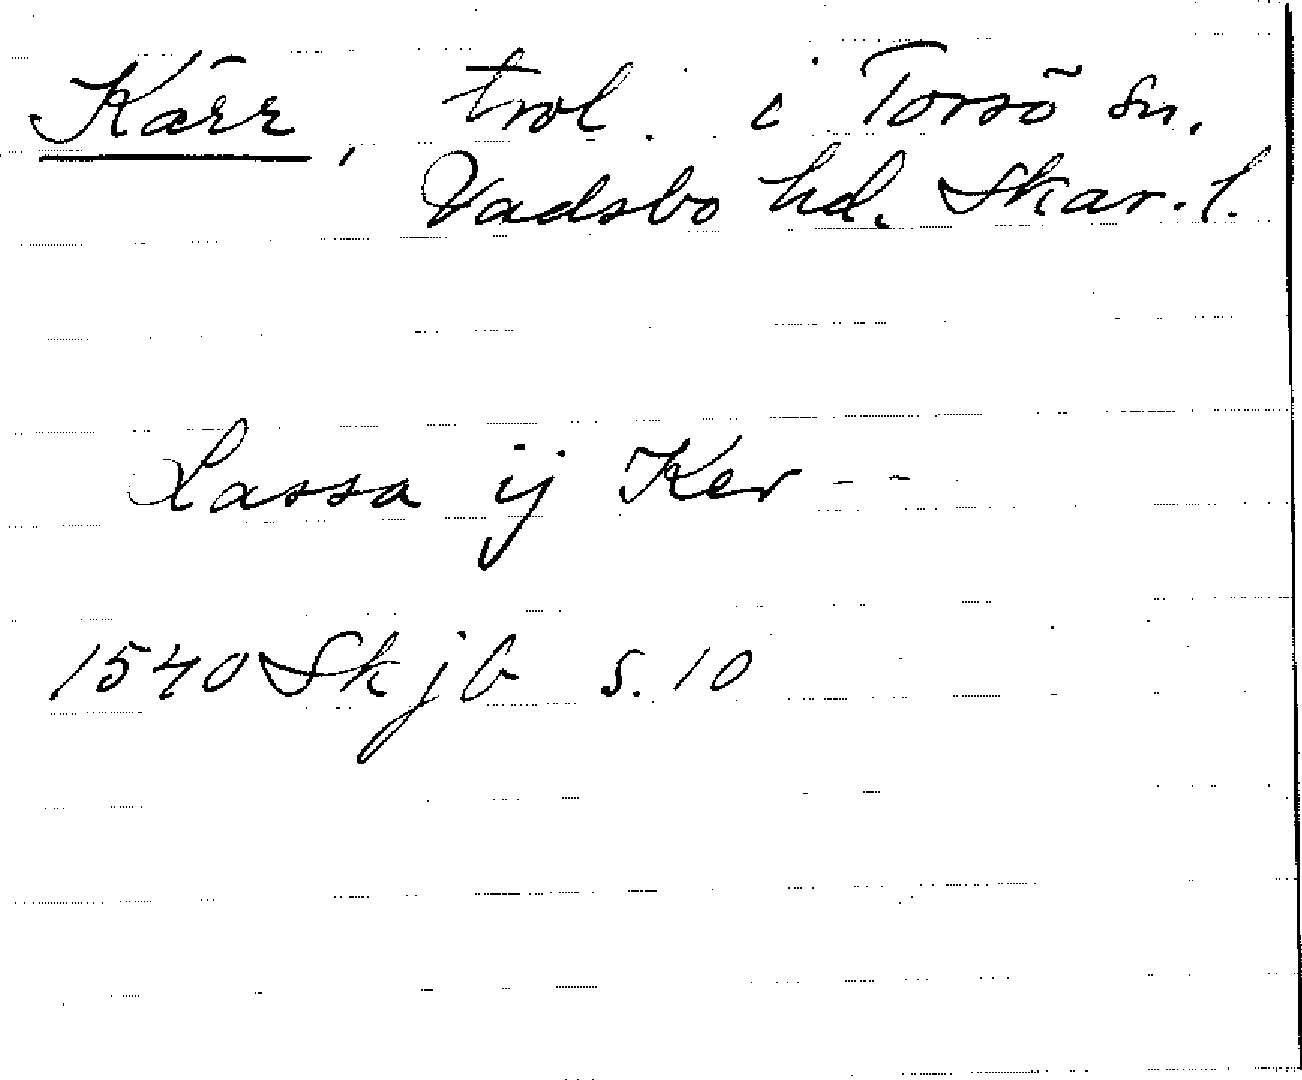 Kärr, trol. i Torsö sn.
Vadsbo hd. Skar.l.
Lassa ij Ker - -
1540 Skjb s. 10